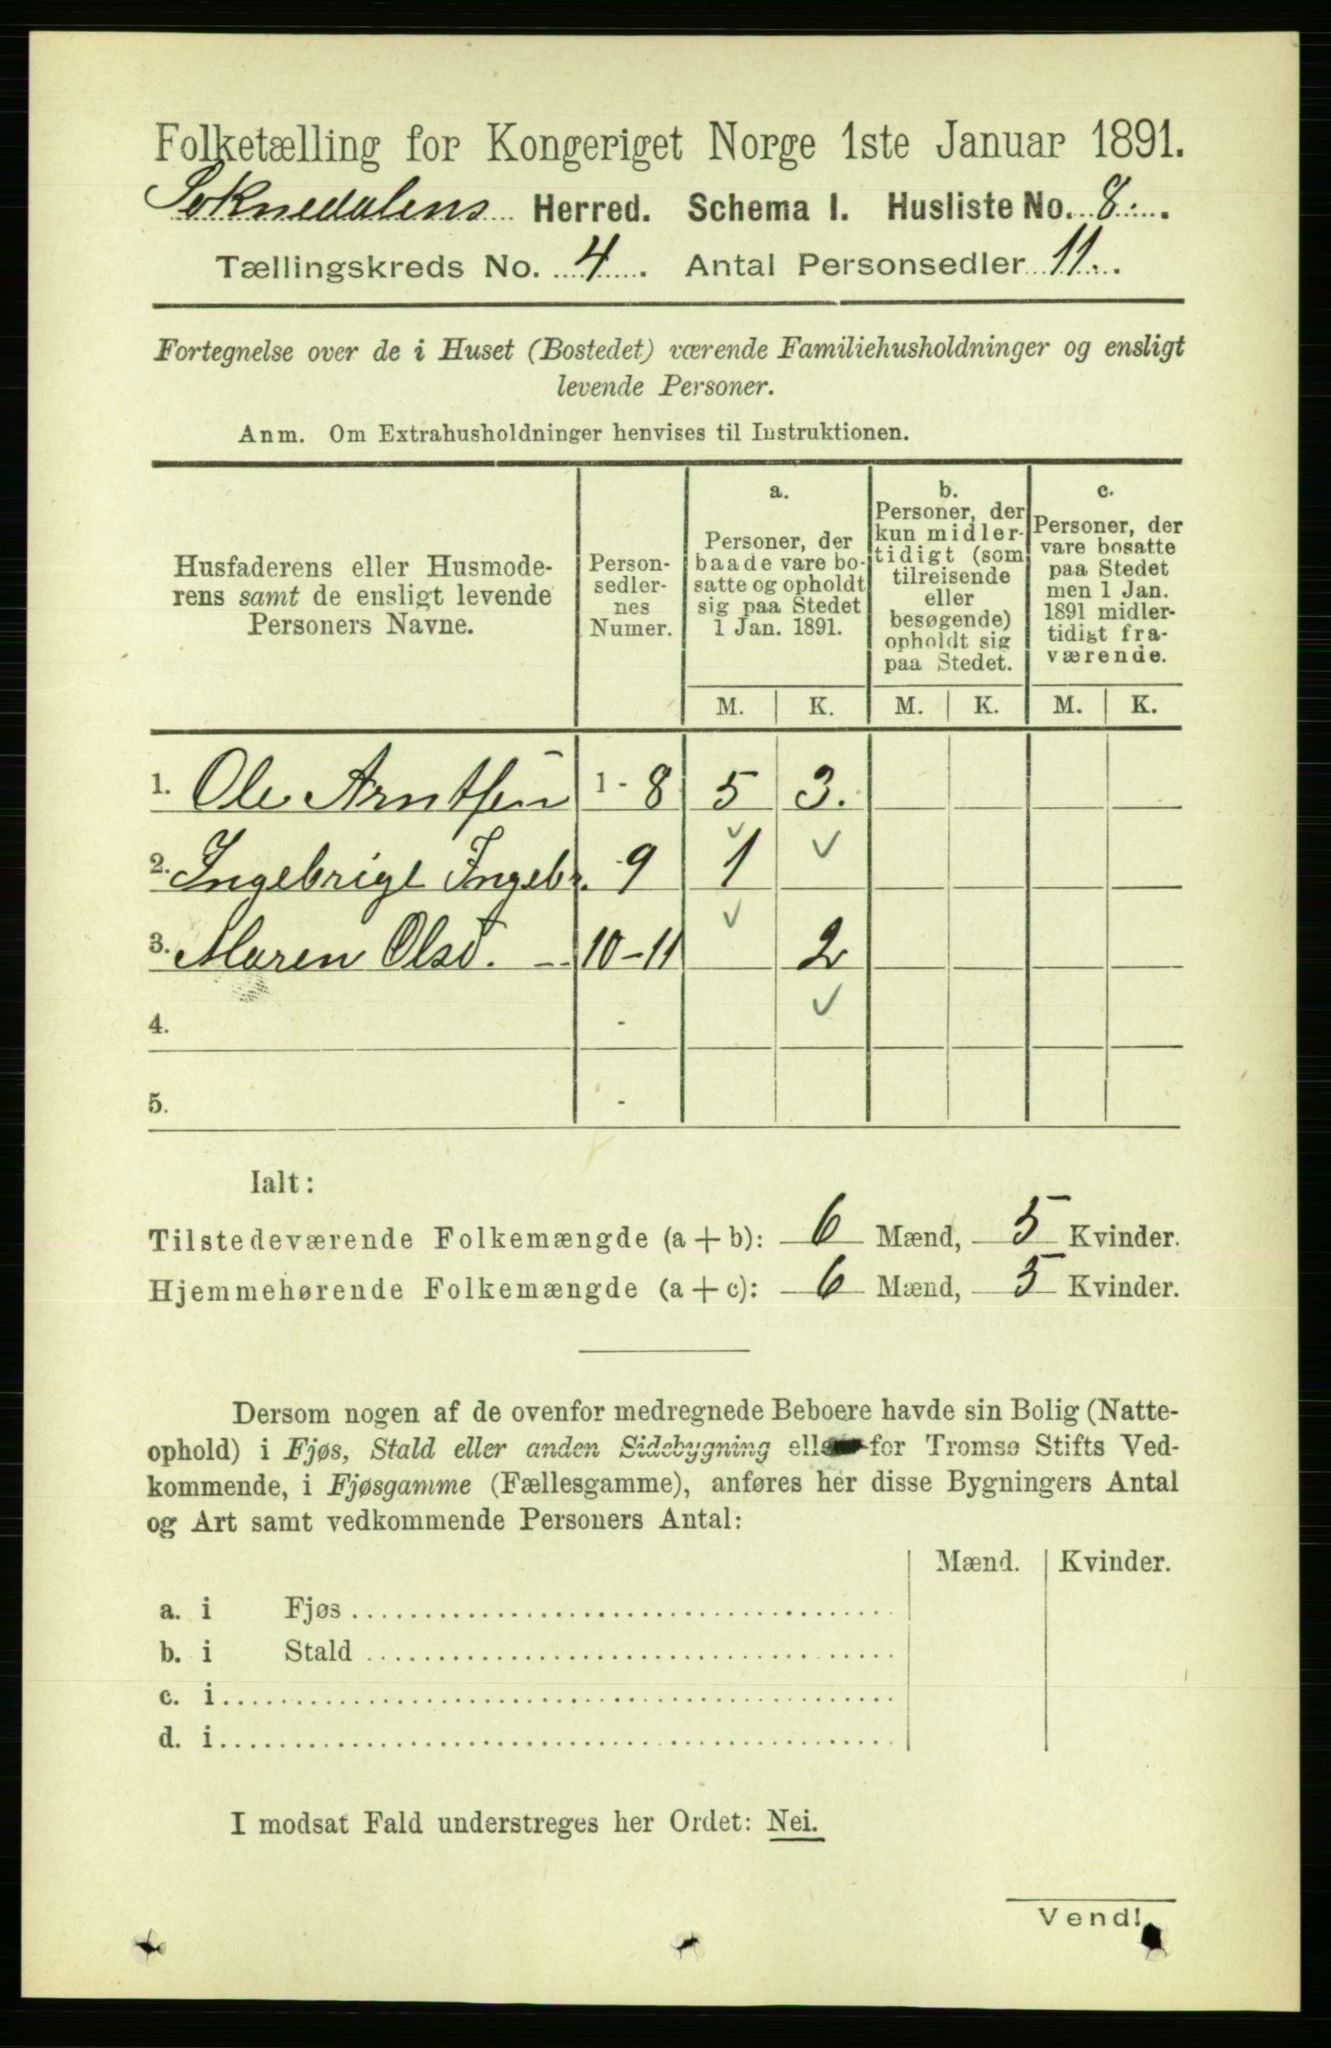 Folketælling for Kongeriget Norge 1ste Januar 1891.
Soknedalens Herred. Schema I. Husliste No. 8.
Tællingskreds No. 4. Antal Personsedler 11.
Fortegnelse over de i Huset (Bostedet) værende Familiehusholdninger og ensligt
levende Personer.
Anm. Om Extrahusholdninger henvises til Instruktionen.
Husfaderens eller Husmode-
rens samt de ensligt levende
Personers Navne.
Person-
sedler-
nes
Numer.
a.
Personer, der
baade vare bo-
satte og opholdt
sig paa Stedet
1 Jan. 1891.
b.
Personer, der
kun midler-
tidigt (som
tilreisende
eller
besøgende)
opholdt sig
paa Stedet.
c.
Personer, der
vare bosatte
paa Stedet
men 1 Jan.
1891 midler-
tidigt fra-
værende.
M. K. M. K. M. K.
1. Ole Arntsen 1 - 8 5 3.
2. Ingebrigt Ingebr. - 9 1 ✓
3. Maren Olsd. 10 - 11 2
4. -
5. -
Ialt:
Tilstedeværende Folkemængde (a + b): 6 Mænd, 5 Kvinder.
Hjemmehørende Folkemængde (a + c): 6 Mænd, 5 Kvinder.
Dersom nogen af de ovenfor medregnede Beboere havde sin Bolig (Natte-
ophold) i Fjøs, Stald eller anden Sidebygning eller for Tromsø Stifts Ved-
kommende, i Fjøsgamme (Fællesgamme), anføres her disse Bygningers Antal
og Art samt vedkommende Personers Antal:
Mænd. Kvinder.
a. i Fjøs
b. i Stald
c. i
d. i
I modsat Fald understreges her Ordet: Nei.
Vend!